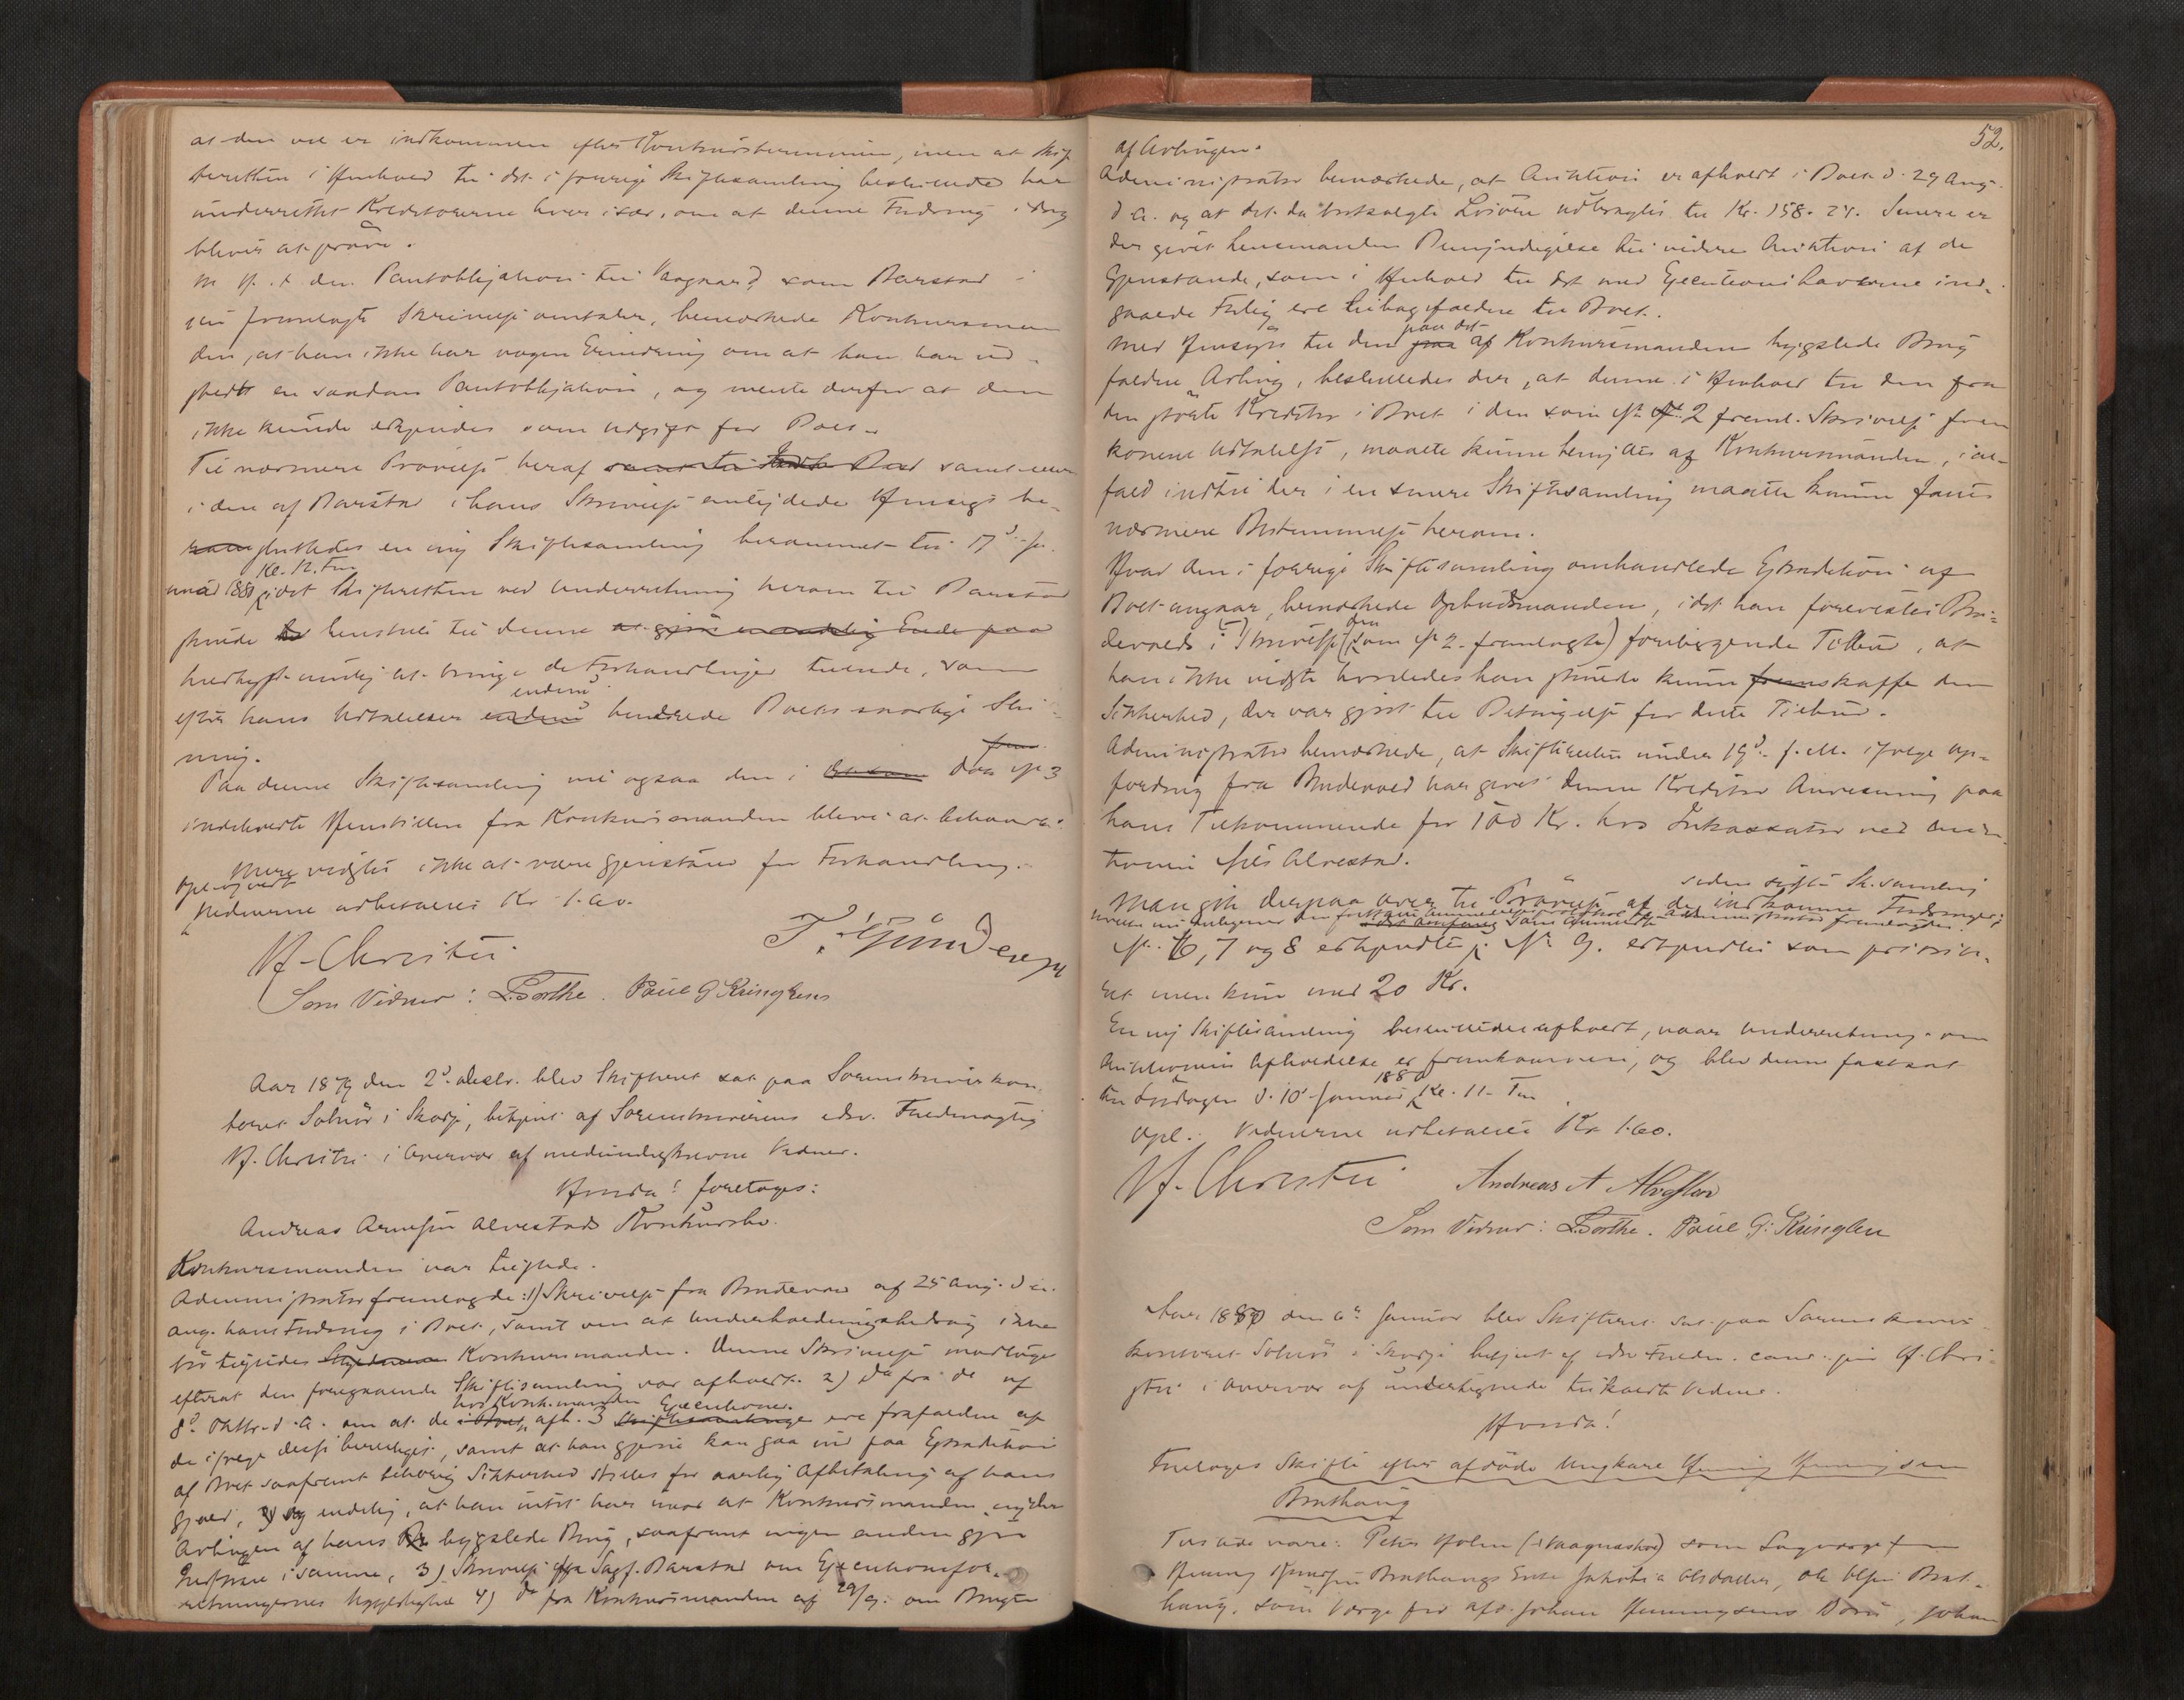 at den vel er indkommen efter Konkursterminen, men at Skif
teretten i Henhold til det i forrige Skiftesamling besluttede har
underrettet Kreditorerne hver især, om at denne Fordring idag
bliver at prøve.
M. H. t. den Pantobligation til Vaagnæs, som Barstad i
sin fremlagte Skrivelse omtaler, bemærkede Konkursman
den, at han ikke har nogen Erindring om at han har ud
stedt en saadan Pantobligation, og mente derfor at den
ikke kunde erkjendes som Udgift for Boet.
Til nærmere Prøvelse heraf samt
i den af Barstad i hans Skrivelse antydede Hensigt be-
sluttedes en ny Skiftesamling berammet til 17d Ja
nuar 1880 Kl. 12 Fm idet Skifteretten ved Underretning herom til Barstad
skulde henstille til denne at gjøre endelig Ende paa
hurtigst mulig at bringe de Forhandlinger tilende, som
efter hans Udtalelser endnu hindrede Boets snarlige Slut
ning.
Paa denne Skiftesamling vil ogsaa den i Dok. No 3
indeholdte Henstillen fra Konkursmanden blive at behandle.
Mere vidstes ikke at være Gjenstand for Forhandling.
Oplæst og vedt
Vidnerne udbetaltes Kr 1.60.
H. Christie
Som Vidner: L. Dorthe. Paul G Kringlen
Aar 1879 den 2d Decbr. blev Skifteret sat paa Sorenskriverkon
toret Solnør i Skodje, betjent af Sorenskriverens edsv. Fuldmægtig
H. Christie i Overvær af medunderskrevne Vidner.
Hvorda! foretoges:
Andreas Arnesen Alvestads Konkursbo.
Konkursmanden var tilstede.
Administrator fremlagde: 1) Skrivelse fra Brudevold af 25 Aug. d. A.
ang. hans Fordring i Boet, samt om at Underholdningsbidrag ikke
bør tilstedes Konkursmanden. Denne Skrivelse modtoges
efterat den foregaaende Skiftesamling var afholdt. 2) Do fra do af
8d Oktbr. d. A. om at de hos Konk.manden afh. 3 Executioner ere frafaldne af
de ifølge disse berettigede, samt at han gjerne kan gaa ind paa Extradition
af Boet saafremt behørig Sikkerhed stilles for aarlig Afbetaling af hans
Gjæld, og endelig, at han intet har imod at Konkursmanden nyder
Avlingen af hans bygslede Brug, saafremt ingen anden gjør
Indsigelse i samme, 3) Skrivelse fra Sagf. Barstad om Executionsfor-
retningernes 4) do fra Konkursmanden af 29/9. om Brugen
52.
af Avlingen.
Administrator bemærkede, at Auktion er afholdt i Boet d. 29 Aug.
d. A. og at det da bortsolgte Løsøre udbragtes til Kr. 158. 24. Senere er
der givet Lensmanden Bemyndigelse til videre Auktion af de
Gjenstande, som i Henhold til det med Executionshaverne ind-
gaaede Forlig ere tilbagefaldne til Boet.
Med Hensyn til den paa det af Konkursmanden bygslede Brug
faldne Avling, besluttedes der, at denne i Henhold til den fra
den største Kreditor i Boet i den som No 2 freml. Skrivelse frem
komne Udtalelse, maatte kunne benyttes af Konkursmanden, ial-
fald indtil der i en senere Skiftesamling maatte kunne fattes
nærmere Bestemmelse herom.
Hvad den i forrige Skiftesamling omhandlede Extradition af
Boet angaar, bemærkede Opbudsmanden, idet han forevistes Bru-
devolds i Skrivelse (den som No 2 fremlagte) foreliggende Tilbud, at
han ikke vidste hvorledes han skulde kunne skaffe den
Sikkerhed, der var gjort til Betingelse for dette Tilbud.
Administrator bemærkede, at Skifteretten under 19d f. M. ifølge Op-
fordring fra Brudevold har givet denne Kreditor Anvisning paa
hans Tilkommende for 100 Kr. hos Inkassator ved Auk
tionen Nils Alvestad.
Man gik derpaa over til Prøvelse af de siden sidste Sk.samling indkomne Fordringer:
No. 6, 7 og 8 erkjendtes; No 9. erkjendtes som priorite-
ret men kun med 20 Kr.
En ny Skiftesamling besluttedes afholdt, naar Underretning om
Auktionens Afholdelse er fremkommen, og blev denne fastsat
til Lørdagen d. 10 Januar 1880 Kl. 11 Fm
Opl. Vidnerne udbetaltes Kr 1.60.
H. Christie Andreas A Alvestad
Som Vidner: L. Dorthe. Paul G. Kringlen
Aar 1880 den 6te Januar blev Skifteret sat paa Sorenskriver
kontoret Solnør i Skodje betjent af edsv Fuldm. cand. jur H. Chri
stie i Overvær af undertegnede tilkaldte Vidner.
Hvorda!
Foretoges Skifte efter afdøde Ungkarl Henning Henningsen
Brathaug
Tilstede vare: Peter Holm (i Vaagnæshol) som Lagværge for
Henning Knudsen Brathaugs Enke Jakobia Olsdatter, Ole Olsen Brat-
haug, som Værge for afd. Johan Henningsens Børn, Johan